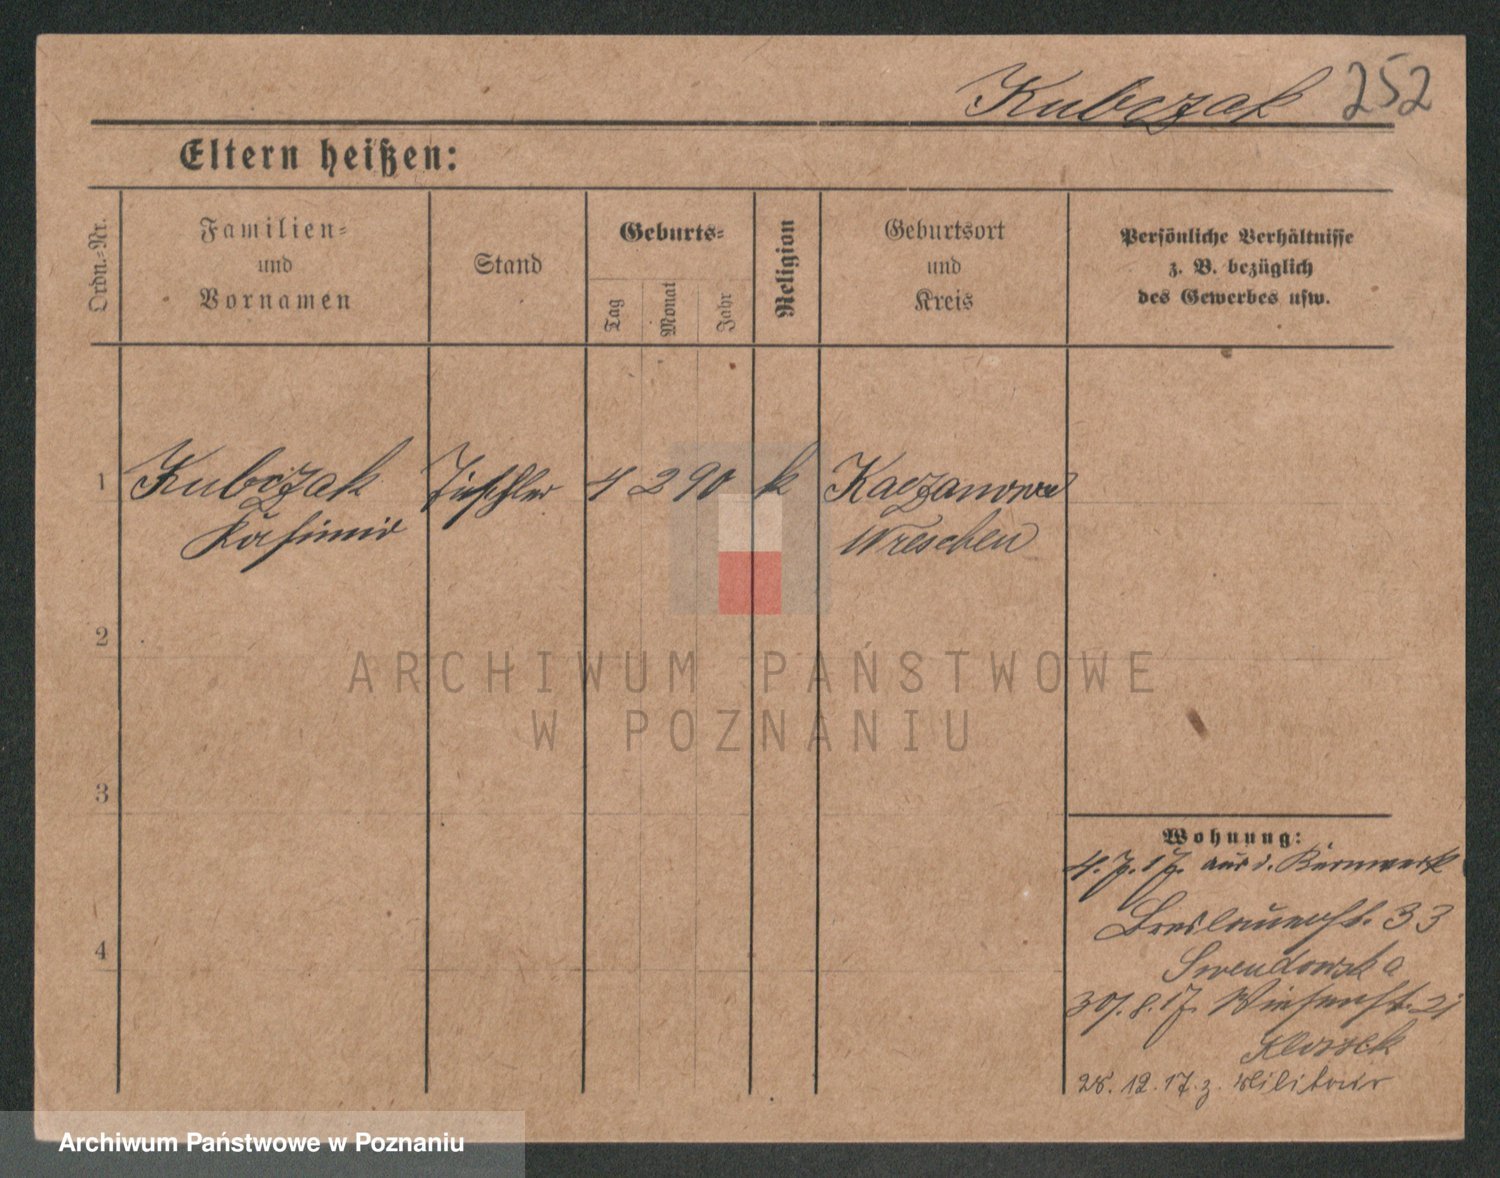 Kubczak 252
Eltern heißen:
Ordn.-Nr.
Familien-
und
Vornamen
Stand
Geburts-
Tag
Monat
Jahr
Religion
Geburtsort
und
Kreis
Persönliche Verhältnisse
z. B. bezüglich
des Gewerbes usw.
1 Kubczak Tischler 4 2 90 k Kaczanowo
Kasimir Wreschen
2
3
4
Wohnung:
4.7.17. aus d. Kernwerk
Breslauerst. 33
30/.8.17. Wiesenst.
28.12.17. z. Militär
ARCHIWUM PAŃSTWOWE
W POZNANIU
Archiwum Państwowe w Poznaniu